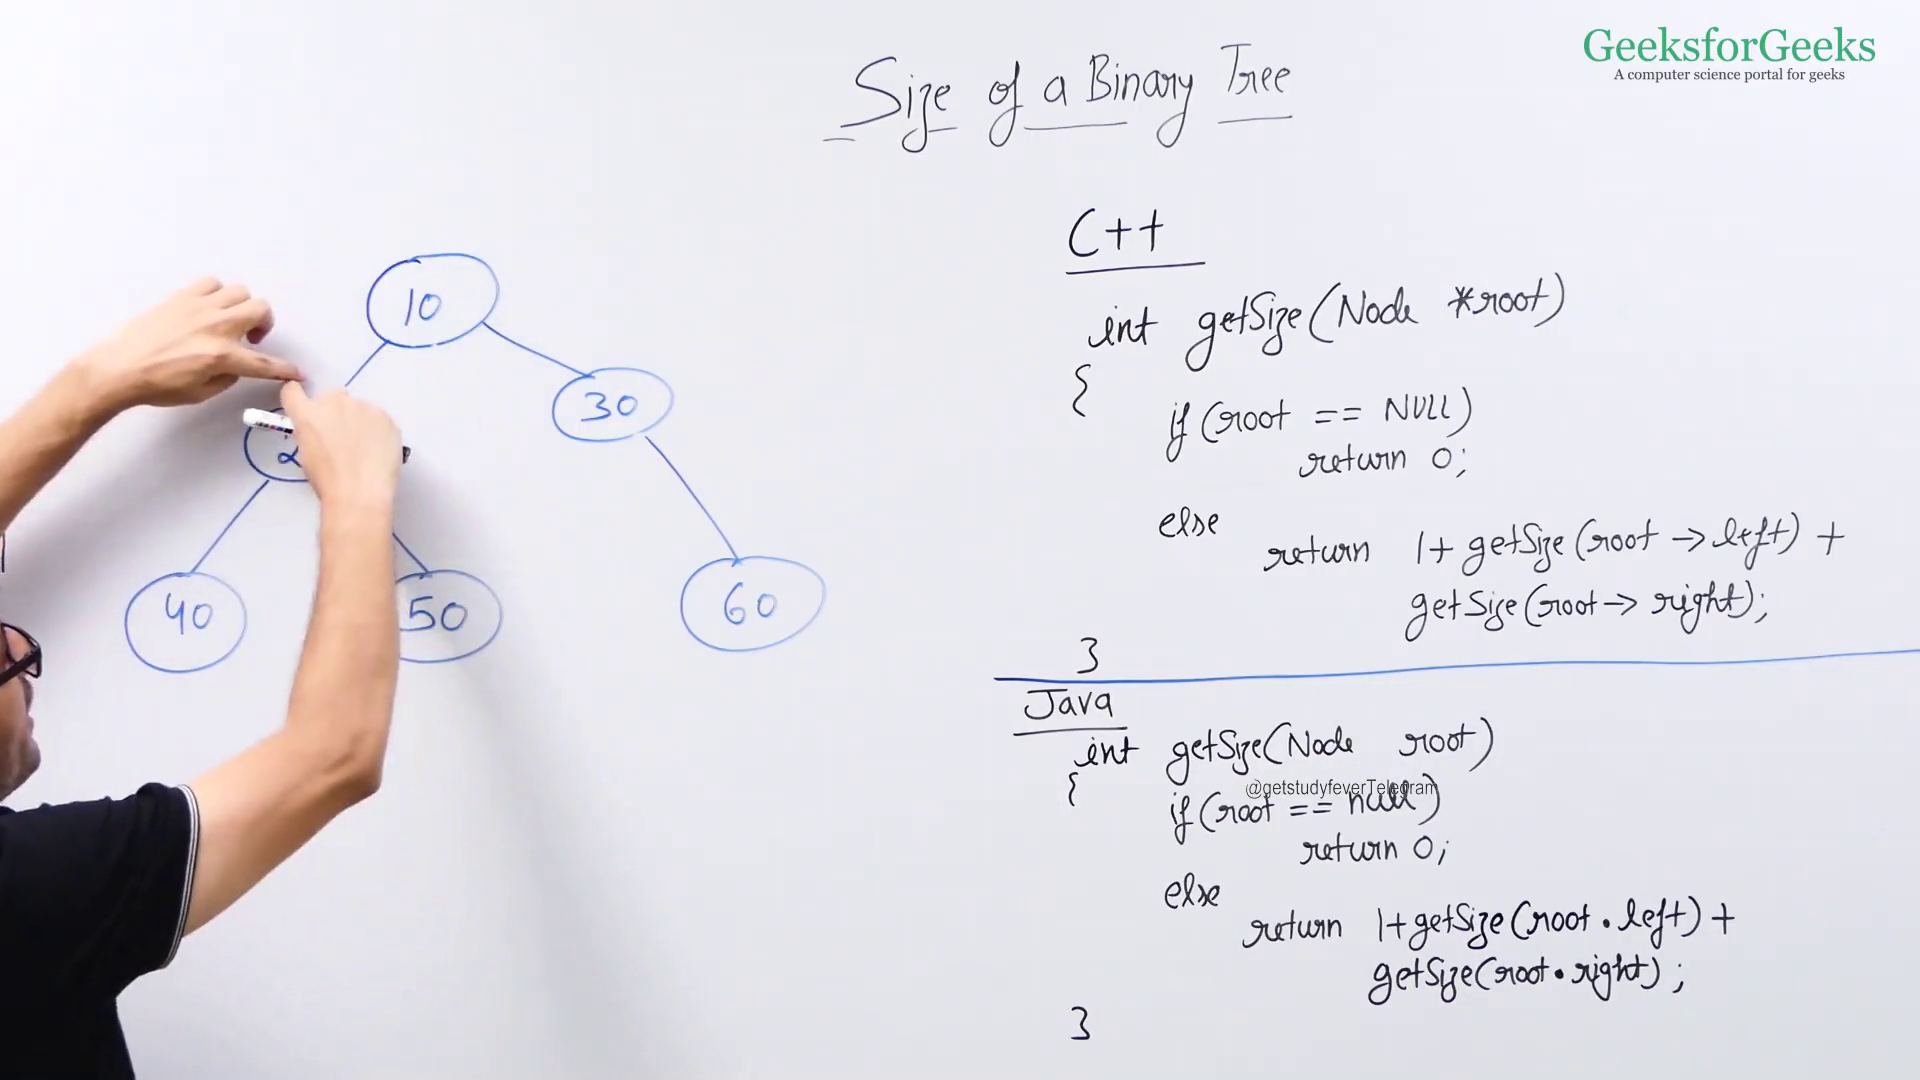 GeeksforGeeks
A computer science portal for geeks
Size of a Binary Tree
10
30
40
50
60
C++
int getSize(Node *root)
{
if(root == NULL)
return 0;
else
return 1+ getSize(root->left) +
getSize(root->right);
}
Java
int getSize(Node root)
{
@getstudyfeverTelegram
if(root == null)
return 0;
else
return 1+getSize(root.left) +
getSize(root.right);
}